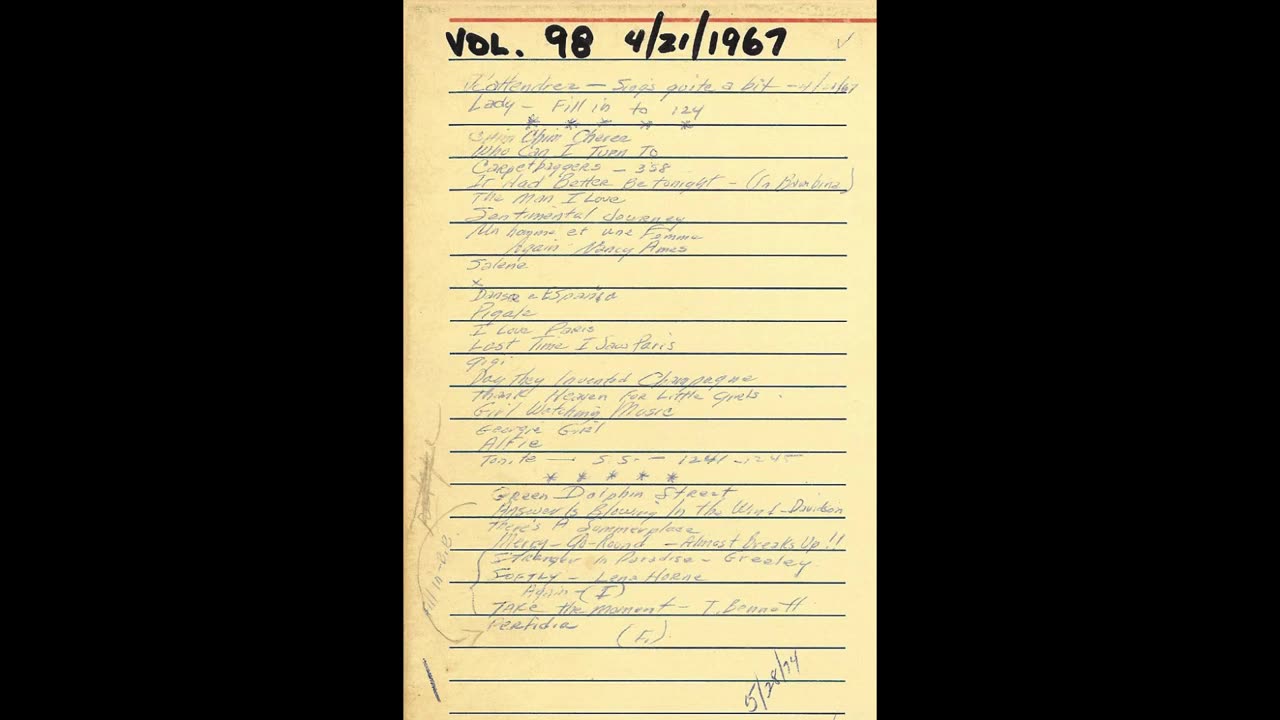 VOL. 98 4/21/1967
J'attendrez — Sings quite a bit - 4/21/67
Lady - Fill in to 124
* * * * *
Chim Chim Cheree
Who Can I Turn To
Carpetbaggers - 358
It Had Better Be Tonight - (In Bambina)
The Man I Love
Sentimental Journey
Un homme et une Femme
Again Nancy Ames
Solene
x
Danse e España
Pigale
I Love Paris
Last Time I Saw Paris
Gigi
Day They Invented Champagne
Thank Heaven For Little Girls
Girl Watching Music
Georgie Girl
Alfie
Tonite — S.S. - 1241 - 1245
* * * * *
Green Dolphin Street
Answer Is Blowing In the Wind - Davidson
There's A Summerplace
Merry-Go-Round - Almost Breaks Up!!
Stranger in Paradise - Greeley
Softly - Lena Horne
Again - (I)
Take the Moment - T. Bennett
Perfidia
Fill in
5/28/74